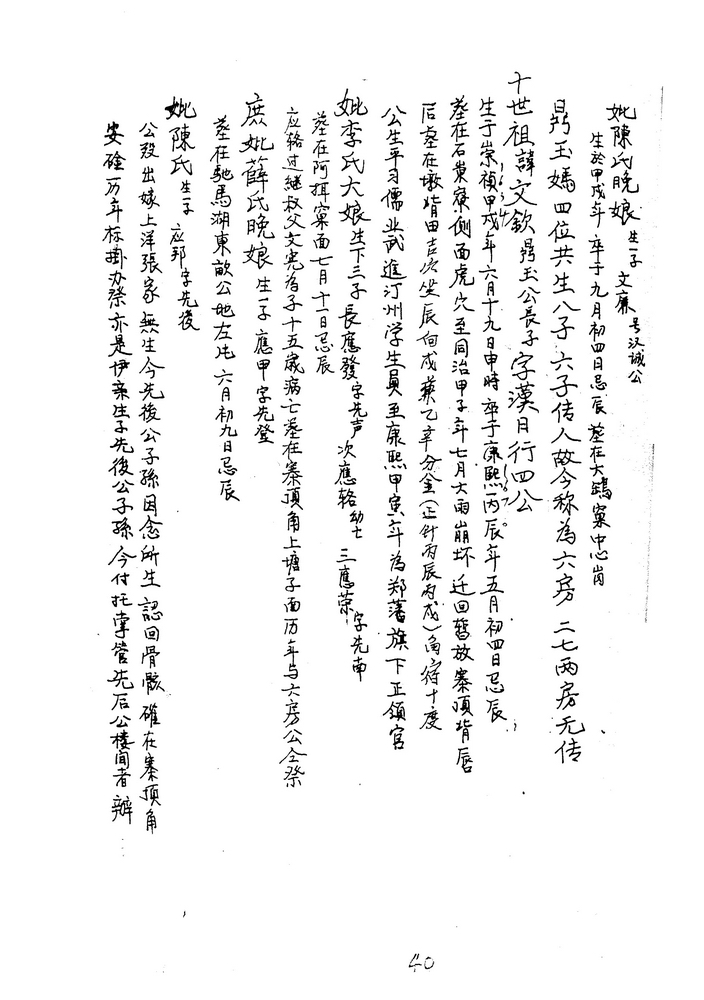 妣陳氏晚娘 生一子 文廉 号汉诚公
生於甲戌年 卒于九月初四日忌辰 墓在大鷂窠中心崗
鼎玉媽四位共生八子 六子传人故今称為六房 二七两房无传
十世祖諱文欽 鼎玉公長子 字漢日行四公
生于崇禎甲戌年六月十九日申時 卒于康熙丙辰年五月初四日忌辰
墓在石崇寮側面虎穴至同治甲子年七月大雨崩坏 迁回暂放寨頂背唇
后墓在墩背田吉穴坐辰向戌兼乙辛分金(正针丙辰丙戌)角宿十度
公生平习儒业武進汀州学生員至康熙甲寅年為郑藩旗下正領官
妣李氏大娘 生下三子 長應發 字先声 次應輅 幼亡 三應荣 字先南
墓在阿挕窠面七月十一日忌辰
应辂过継叔父文宪為子十五歲病亡墓在寨頂角上塘子面历年与六房公仝祭
庶妣薛氏晚娘 生一子 應甲 字先登
墓在馳馬湖東畝公地左片 六月初九日忌辰
妣陳氏 生子 应邦 字先後
公殁出嫁上洋張家 無生今先後公子孫因念所生 認回骨骸 確在寨頂角
安碒历年标掛办祭亦是伊亲生子先後公子孫今付托掌管先后公楼间者辦
40